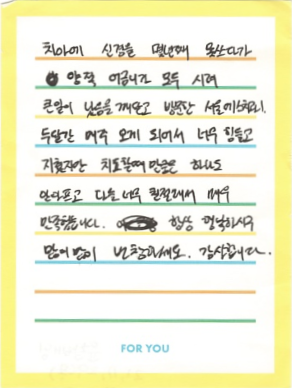 치아에 신경을 몇년째 못쓰다가
양쪽 어금니가 모두 시려
큰일이 났음을 깨닫고 방문한
두달간 매주 오게 되어서 너무 힘들고
지쳤지만 치료할때 만큼은 하나도
안아프고 다들 너무 친절해서 매우
만족했습니다. 항상 건강하시고
많이 많이 번창하세요. 감사합니다.
FOR YOU